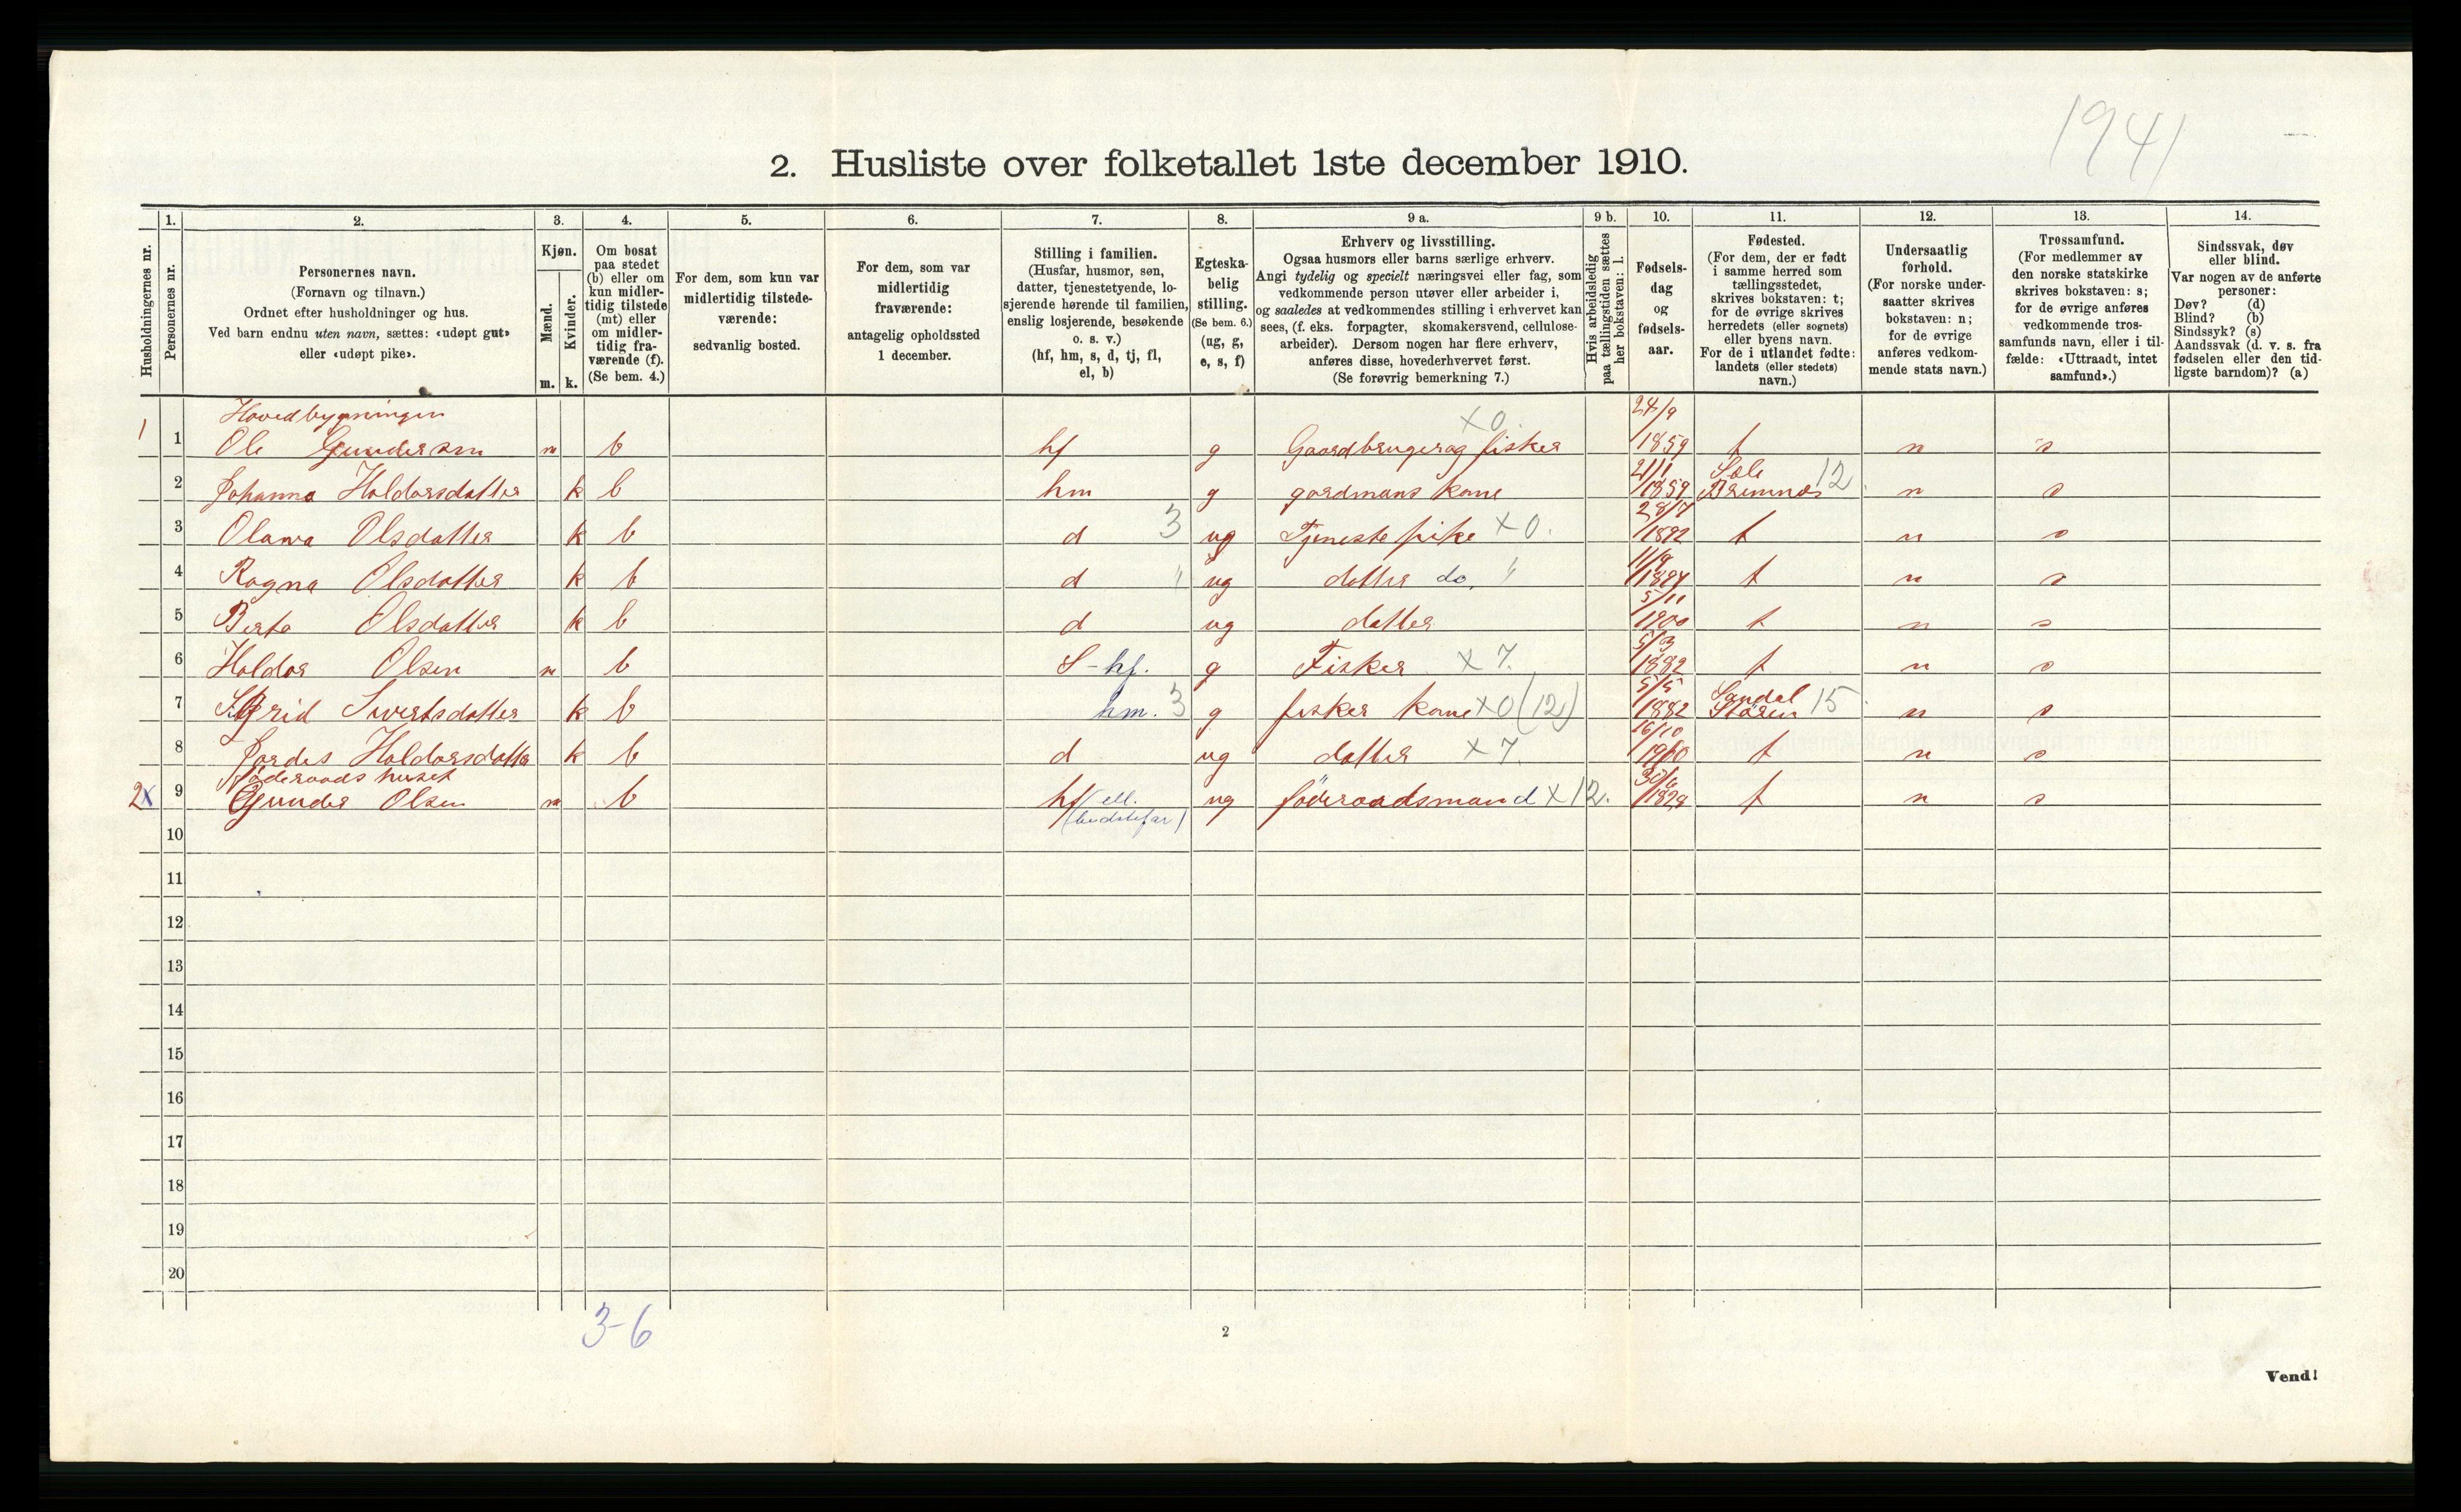 1941
2. Husliste over folketallet 1ste december 1910.
1. 2. 3. 4. 5. 6. 7. 8. 9 a. 9 b. 10. 11. 12. 13. 14.
Husholdningernes nr.
Personernes nr.
Personernes navn.
(Fornavn og tilnavn.)
Ordnet efter husholdninger og hus.
Ved barn endnu uten navn, sættes: «udøpt gut»
eller «udøpt pike».
Kjøn.
Mænd.
Kvinder.
m. k.
Om bosat
paa stedet
(b) eller om
kun midler-
tidig tilstede
(mt) eller
om midler-
tidig fra-
værende (f).
(Se bem. 4.)
For dem, som kun var
midlertidig tilstede-
værende:
sedvanlig bosted.
For dem, som var
midlertidig
fraværende:
antagelig opholdssted
1 december.
Stilling i familien.
(Husfar, husmor, søn,
datter, tjenestetyende, lo-
sjerende hørende til familien,
enslig losjerende, besøkende
o. s. v.)
(hf, hm, s, d, tj, fl,
el, b)
Egteska-
belig
stilling.
(Se bem. 6.)
(ug, g,
e, s, f)
Erhverv og livsstilling.
Ogsaa husmors eller barns særlige erhverv.
Angi tydelig og specielt næringsvei eller fag, som
vedkommende person utøver eller arbeider i,
og saaledes at vedkommendes stilling i erhvervet kan
sees, (f. eks. forpagter, skomakersvend, cellulose-
arbeider). Dersom nogen har flere erhverv,
anføres disse, hovederhvervet først.
(Se forøvrig bemerkning 7.)
Hvis arbeidsledig
paa tællingstiden sættes
her bokstaven: l.
Fødsels-
dag
og
fødsels-
aar.
Fødested.
(For dem, der er født
i samme herred som
tællingsstedet,
skrives bokstaven: t;
for de øvrige skrives
herredets (eller sognets)
eller byens navn.
For de i utlandet fødte:
landets (eller stedets)
navn.)
Undersaatlig
forhold.
(For norske under-
saatter skrives
bokstaven: n;
for de øvrige
anføres vedkom-
mende stats navn.)
Trossamfund.
(For medlemmer av
den norske statskirke
skrives bokstaven: s;
for de øvrige anføres
vedkommende tros-
samfunds navn, eller i til-
fælde: «Uttraadt, intet
samfund».)
Sindssvak, døv
eller blind.
Var nogen av de anførte
personer:
Døv? (d)
Blind? (b)
Sindssyk? (s)
Aandssvak (d. v. s. fra
fødselen eller den tid-
ligste barndom)? (a)
Hovedbygningen
1 1 Ole Gundersen m b hf g Gaardbruger og fisker x 0 24/9 1859 t n s
2 Johanna Haldorsdatter k b hm g gardmans kone 21/1 1859 Bremnes 12 n s
3 Olava Olsdatter k b d 3 ug Tjeneste pike x 0. 28/7 1892 t n s
4 Ragna Olsdatter k b d " ug datter do. " 11/9 1894 t n s
5 Berta Olsdatter k b d ug datter 5/11 1900 t n s
6 Haldor Olsen m b S - hf. g Fisker x 7. 5/3 1882 t n s
7 Sivertsdatter k b hm. 3 g fisker kone x 0 (12) 5/5 1882 Støren 15 n s
8 Jordis Haldorsdatter k b d ug datter x 7. 16/10 t n s
føderaads huset
2x 9 Gunder Olsen m b hf el. ug föderaadsmand x 12. 1829 t n s
10
11
12
13
14
15
16
17
18
19
20
3-6
2
Vend!